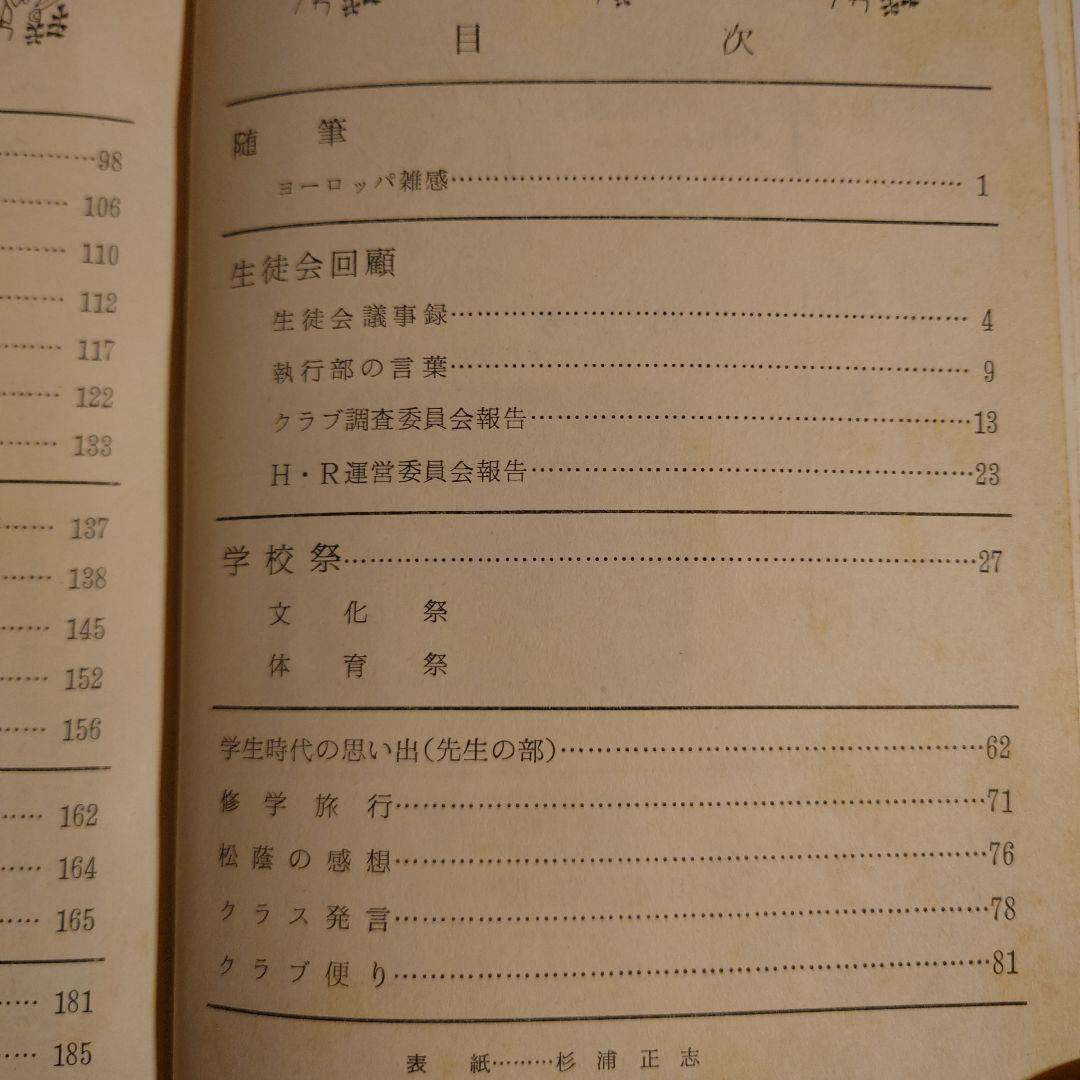 目次
随筆
ヨーロッパ雑感…………………………………………………… 1
生徒会回顧
生徒会議事録…………………………………………………… 4
執行部の言葉…………………………………………………… 9
クラブ調査委員会報告……………………………………………13
H・R運営委員会報告……………………………………………23
学校祭………………………………………………………………27
文化祭
体育祭
学生時代の思い出(先生の部)…………………………………………62
修学旅行……………………………………………………………71
松蔭の感想…………………………………………………………76
クラス発言…………………………………………………………78
クラブ便り…………………………………………………………81
表紙………杉浦正志
…………98
……… 106
……… 110
……… 112
……… 117
……… 122
……… 133
……… 137
……… 138
……… 145
……… 152
……… 156
…… 162
…… 164
…… 165
…… 181
…… 185